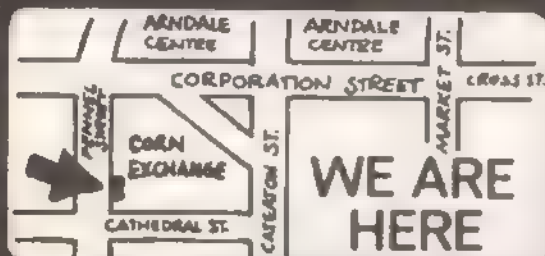 ARNDALE
CENTRE
ARNDALE
CENTRE
CORPORATION STREET
MARKET ST.
CROSS ST.
FENNEL
STREET
CORN
EXCHANGE
CATEATON ST.
CATHEDRAL ST.
WE ARE
HERE